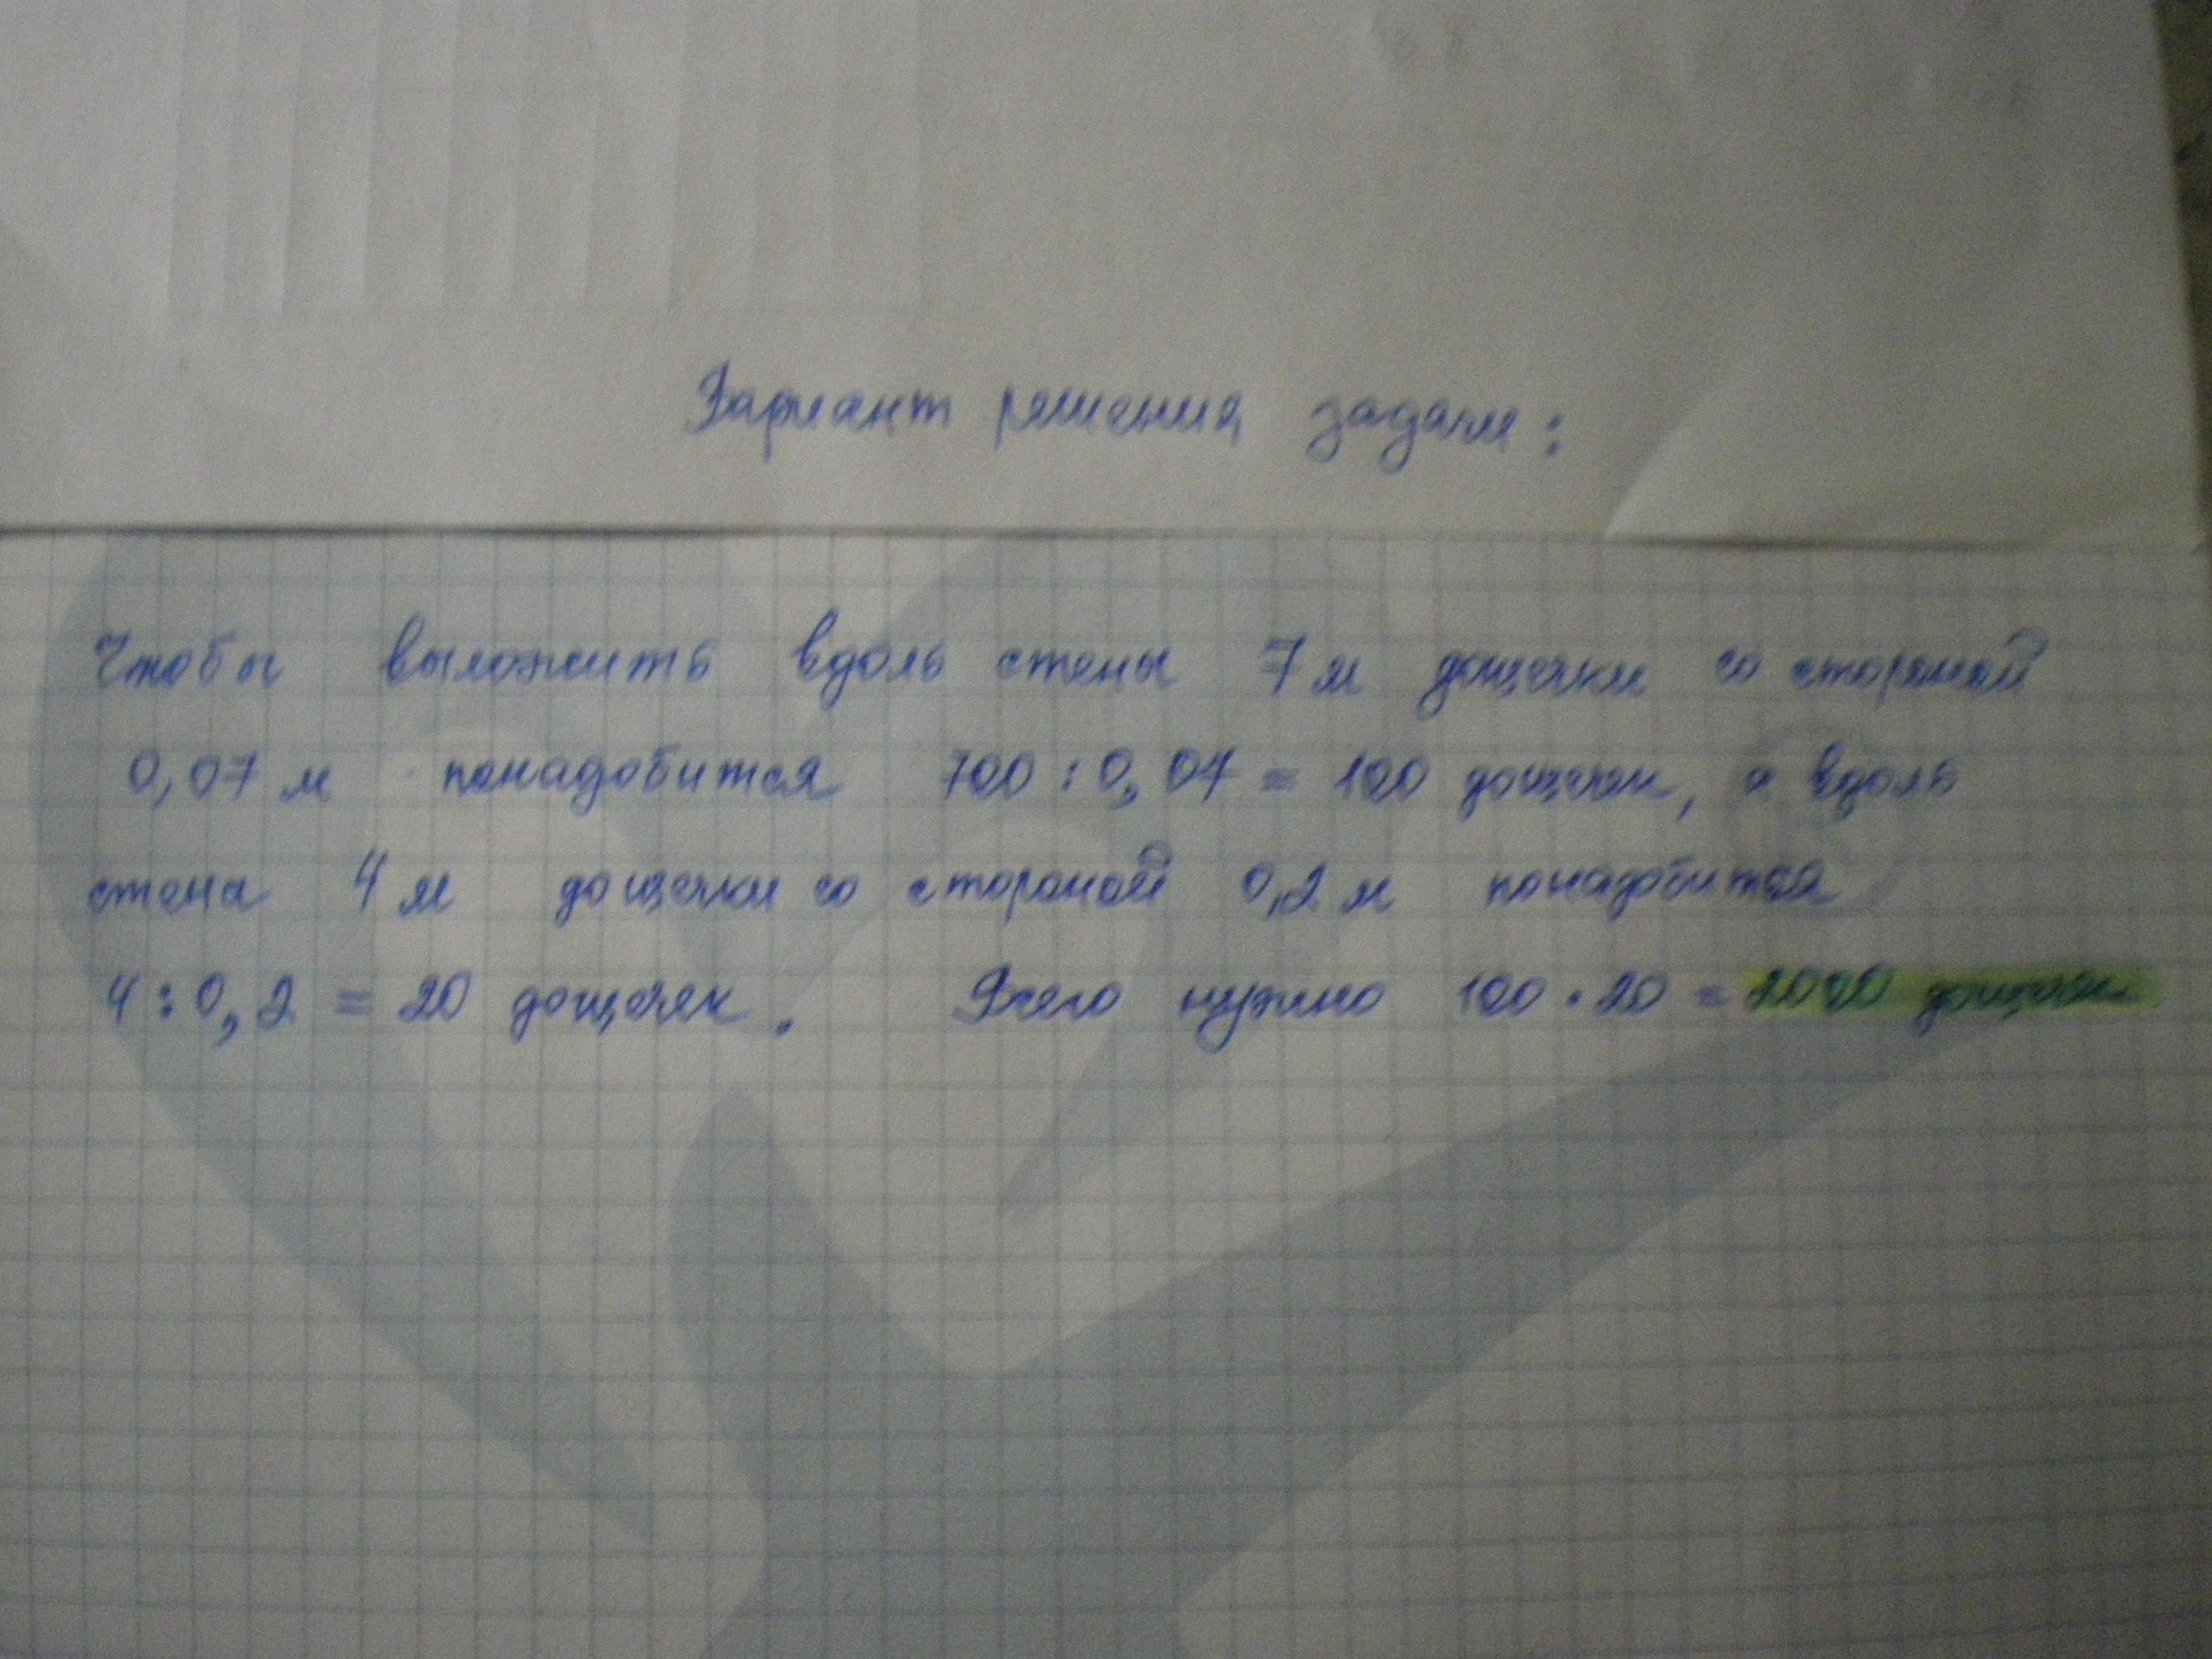 Вариант решения задачи:
Чтобы выложить вдоль стены 7 м дощечки со стороной
0,07 м понадобится 700 : 0,07 = 100 дощечек, а вдоль
стена 4 м дощечки со стороной 0,2 м понадобится
4 : 0,2 = 20 дощечек. Всего нужно 100 · 20 = 2000 дощечек